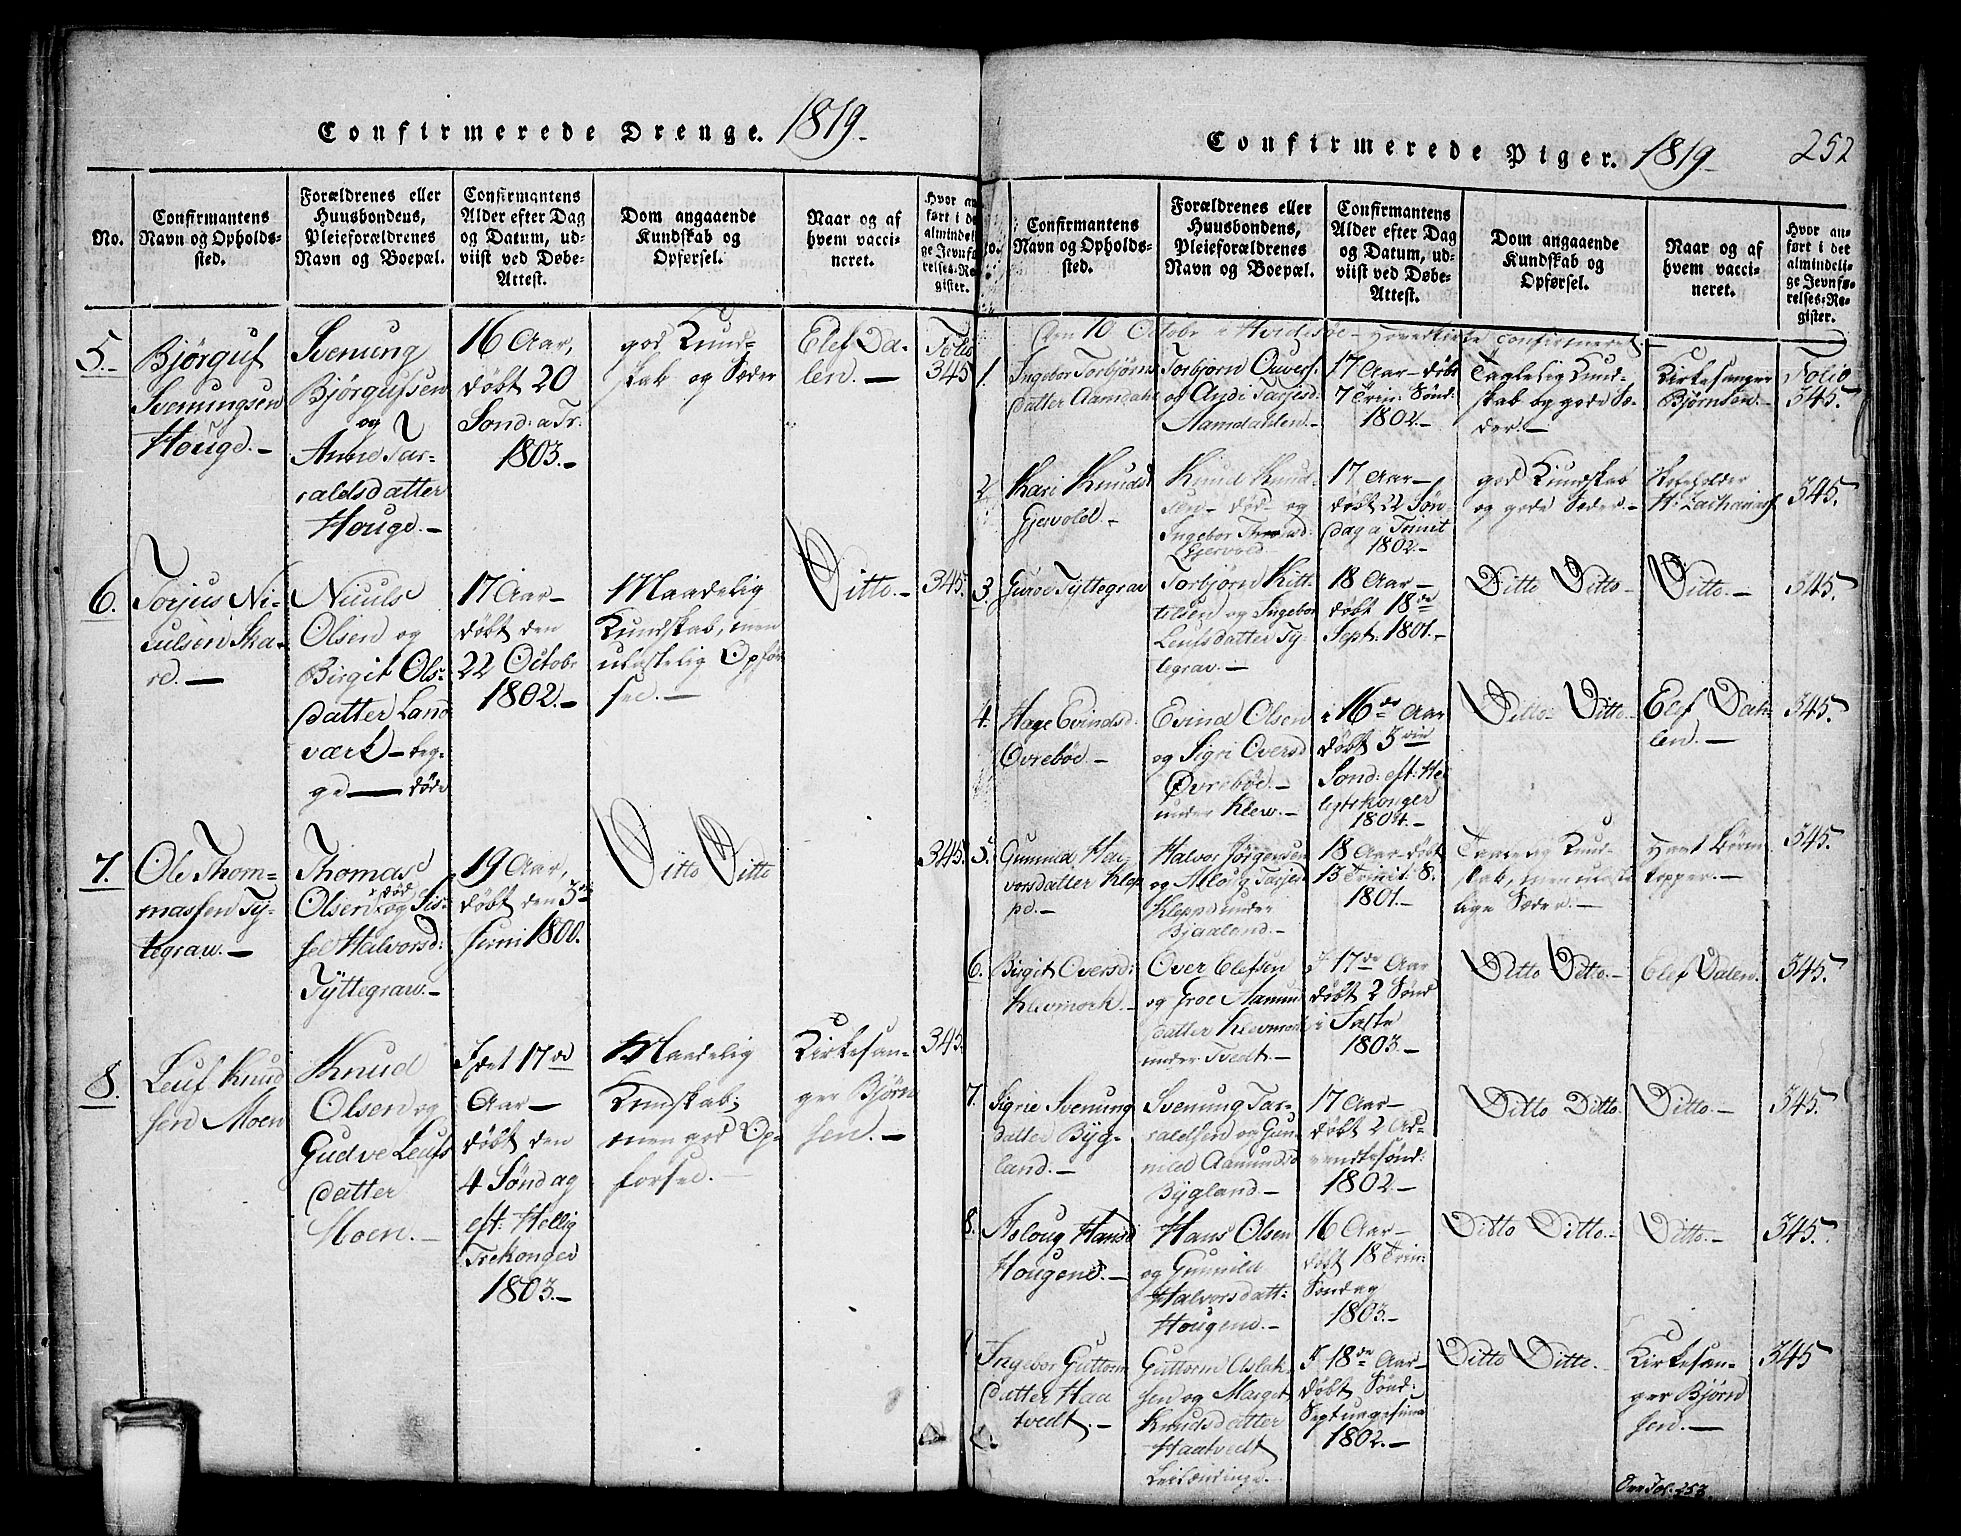 Confirmerede Drenge. 1819.
No.
Confirmantens
Navn og Opholds-
sted.
Forældrenes eller
Huusbondens,
Pleieforældrenes
Navn og Boepæl.
Confirmantens
Alder efter Dag
og Datum, ud-
viist ved Døbe-
Attest.
Dom angaaende
Kundskab og
Opførsel.
Naar og af
hvem vacci-
neret.
Hvor an
ført i de
almindel
ge Jevnfø
relses-Re
gister.
5.
Bjørguf
Svenungsen
Houge.
Svenung
Bjørgufsen
og
Anne Tar-
aldsdatter
Houge.
16 Aar,
døbt 20
Sond: a Tr.
1803.
god Kund-
skab og Sæder
Elef Da-
len.
Folio
345
6.
Torjus Ni-
culsen Ska-
rd.
Niculs
Olsen og
Birgit Ols-
datter Land
værk - beg-
ge døde
17 Aar
døbt den
22 Octobr
1802.
Maadelig
Kundskab, men
ulastelig Opfør
sel.
Ditto.
345.
7.
Ole Thom-
massen Ty-
tegraw.
Thomas
Olsen død og Sis-
sel Halvorsd:
Tyttegraw.
19 Aar,
døbt den 3de
Juni 1800.
Ditto Ditto
345.
8.
Leuf Knud
sen Moen
Knud
Olsen og
Gudve Leufs
datter
Moen.
I det 17de
Aar
døbt den
4 Søndag
eft: Hellig
Trekonger
1803.
Maadelig
Kundskab,
men god Op-
førsel.
Kirkesan-
ger Bjørn
sen.
345.
Confirmerede Piger. 1819 252
Confirmantens
Navn og Opholds-
sted.
Forældrenes eller
Huusbondens,
Pleieforældrenes
Navn og Boepæl.
Confirmantens
Alder efter Dag
og Datum, ud-
viist ved Døbe-
Attest.
Dom angaaende
Kundskab og
Opførsel.
Naar og af
hvem vacci-
neret.
Hvor an-
ført i det
almindeli-
ge Jevnfø-
relses-Re-
gister.
Den 10 Octobr i Hvidesøe Hovedkirke confirmeret
1.
Ingebor Torbjørns
datter Aamdahl
Torbjørn Ouvers.
og Andi Tarjesd.
Aamdalen.
17 Aar døbt
7 Trin: Sønd:
1802.
Taalelig Kund-
skab og gode Sæ-
der.
Kirkesanger
Bjørnsen.
Folio
345.
2.
Kari Knuds
Gjervold
Knud Knud
sen død og
Ingebor
Gjervold
17 Aar
døbt 22 Søn
dag a Trinit
1802.
god Kundskab
og gode Sæder.
Skoleholder
H: Zacharias
345.
3.
Guroe Tyttegrav
Torbjørn Kitt
tilsen og Ingebor
Leufsdatter Ty-
tegrav.
18 Aar
døbt 18de
Sept: 1801.
Ditto Ditto
Ditto.
345.
4.
Hage Evindsd.
Ovrebøe.
Evind Olsen
og Sigri Oversd
Øvrebøe.
under Klew.
i 16de Aar
døbt 3die
Sond: eft: He
ligtrekonger
1804.
Ditto Ditto
Elef Dah-
len.
345.
5.
Gunnild Hal
vorsdatter Klep
pe.
Halvor Jørgensen
og Asloug Tarjesd
Kleppe under
Bjaaland.
18 Aar døbt
13 Trinit: S:
1801.
Taalelig Kund-
skab, men ulaste
lige Sæder.
Havt Børne
kopper.
345.
6.
Birgit Oversd:
Klevmork.
Over Elefsen
og Groe Aamun
datter Klevmork
under Tvedt.
I 17de Aar
døbt 2 Sønd
i Faste
1803.
Ditto Ditto.
Elef Dalen.
345.
7.
Signe Svenung
datter Byg-
land.
Svenung Tar-
raldsen og Gun
nild Aamundsd
Bygland.
17 Aar
døbt 2 Ad-
ventsønd:
1802.
Ditto Ditto.
Ditto.
345.
8.
Asloug Hansd
Hougene.
Hans Olsen
og Gunnild
Halvorsdatt:
Hougene.
16 Aar
døbt 18 Trin:
Søndag
1803.
Ditto Ditto.
Ditto.
345.
Ingebor Guttorm
datter Haa
tvedt.
Guttorm Aslak
sen og Marget
Knudsdatter
Haatvedt
Leilændinge.
I 18de Aar
døbt Sønd:
Septuagesima
1802.
Ditto Ditte.
Kirkesan-
ger Bjørn
sen.
345